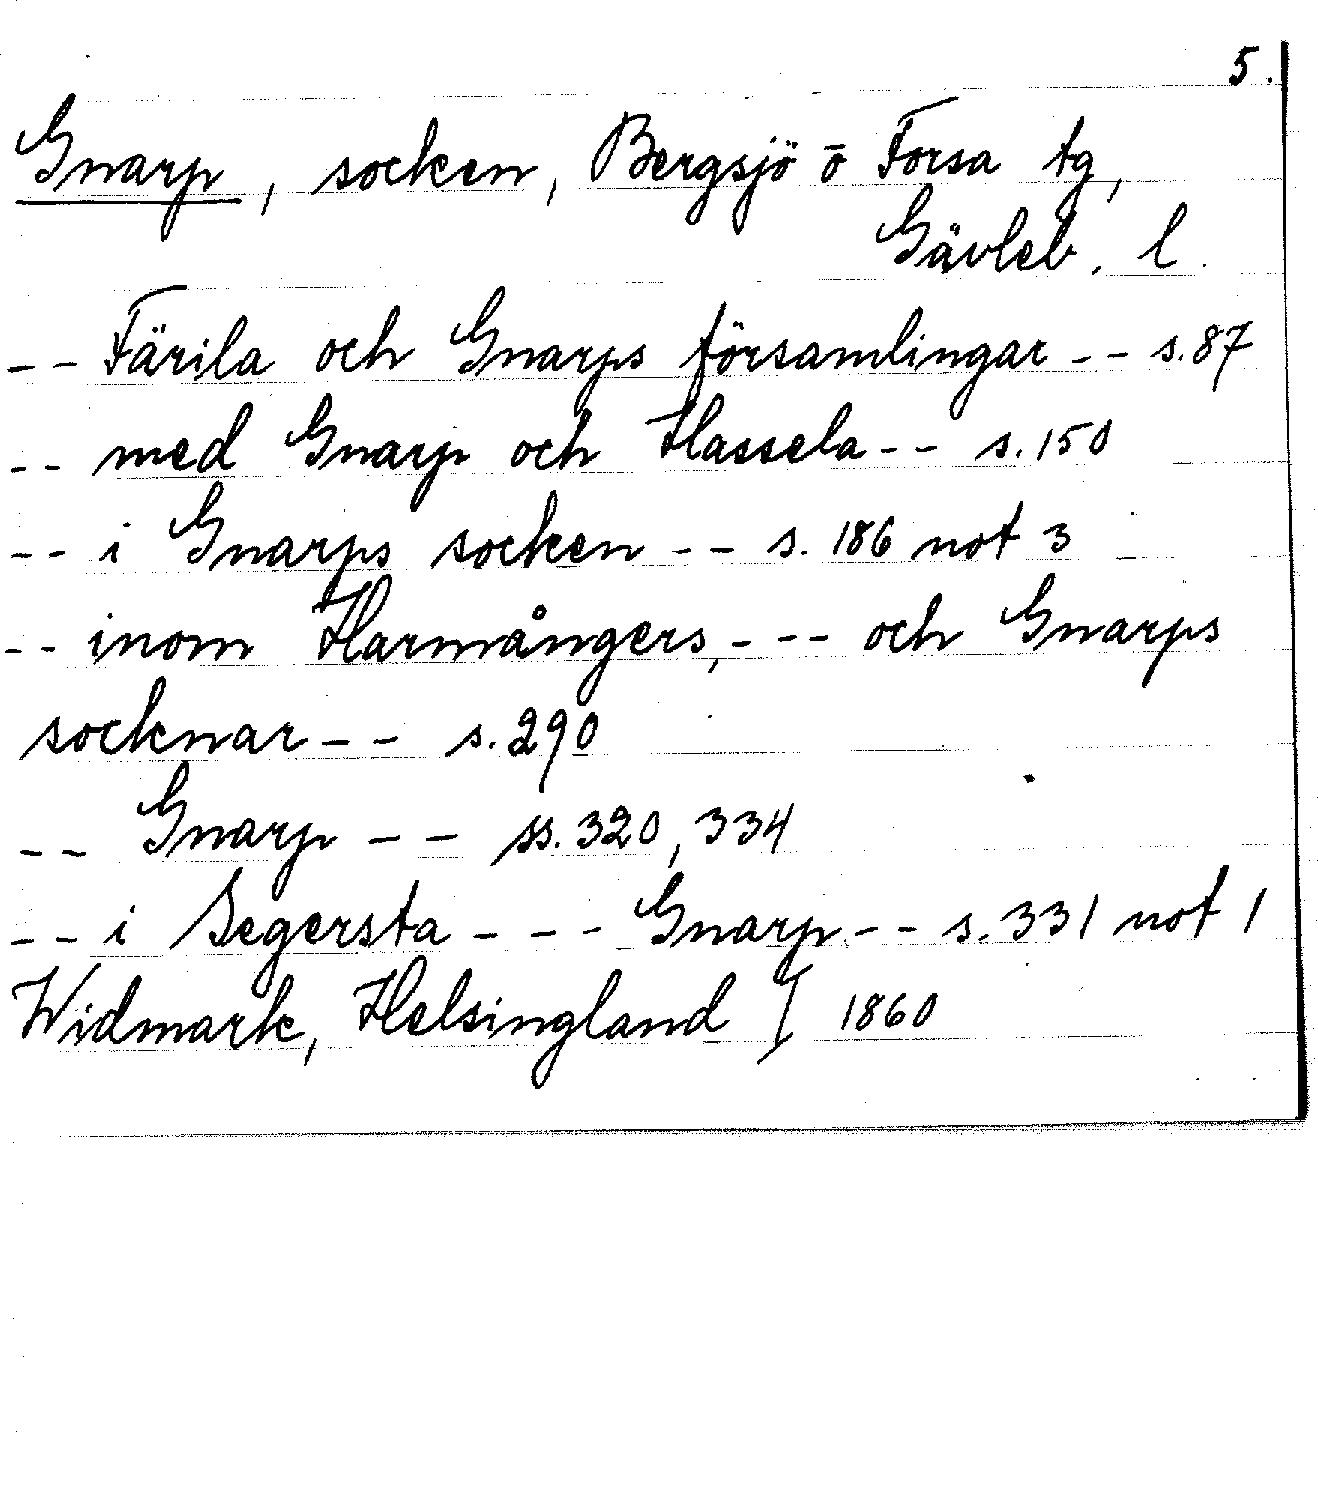 5.
Gnarp, socken, Bergsjö ō Forsa tg,
Gävleb. l.
-- Färila och Gnarps församlingar -- s.87
-- med Gnarp och Hassela -- s.150
-- i Gnarps socken -- s. 186 not 3
-- inom Harmångers, --- och Gnarps
socknar -- s.290
-- Gnarp -- ss.320, 334
-- i Segersta --- Gnarp -- s.331 not 1
Widmark, Helsingland I 1860